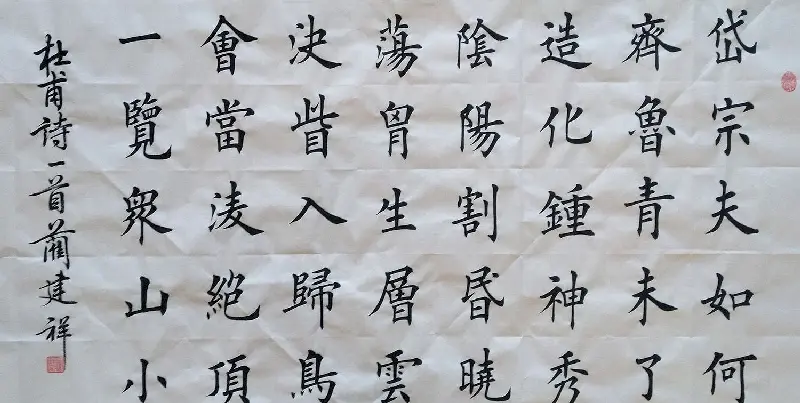 岱宗夫如何
齊魯青未了
造化鍾神秀
陰陽割昬曉
蕩胷生層雲
決眥入歸鳥
會當淩絶頂
一覽眾山小
杜甫詩一首藺建祥